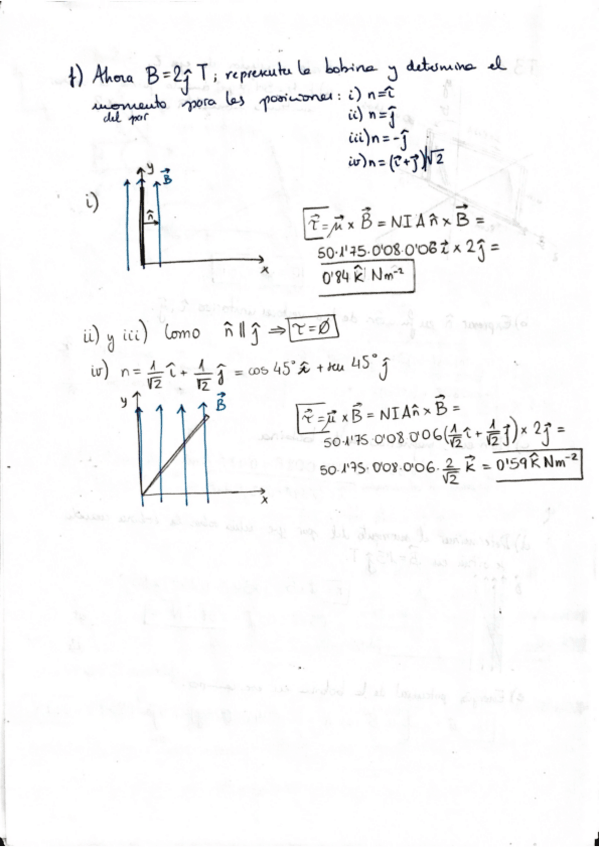 f) Ahora B=2ĵ T; representa la bobina y determina el
momento para las posiciones: i) n=î
del par
ii) n=ĵ
iii) n=-ĵ
iv) n=(î+ĵ)/√2
i)
y
B⃗
n̂
x
τ⃗=μ⃗ x B⃗ = NIA n̂ x B⃗ =
50·1'75·0'08·0'06 î x 2ĵ =
0'84 k̂ Nm⁻²
ii) y iii) Como n̂ ∥ ĵ ⇒ τ=∅
iv) n= 1/√2 î + 1/√2 ĵ = cos 45° î + sen 45° ĵ
y
B⃗
x
τ⃗=μ⃗ x B⃗ = NIA n̂ x B⃗ =
50·1'75·0'08·0'06 (1/√2 î + 1/√2 ĵ) x 2ĵ =
50·1'75·0'08·0'06· 2/√2 k⃗ = 0'59 k̂ Nm⁻²